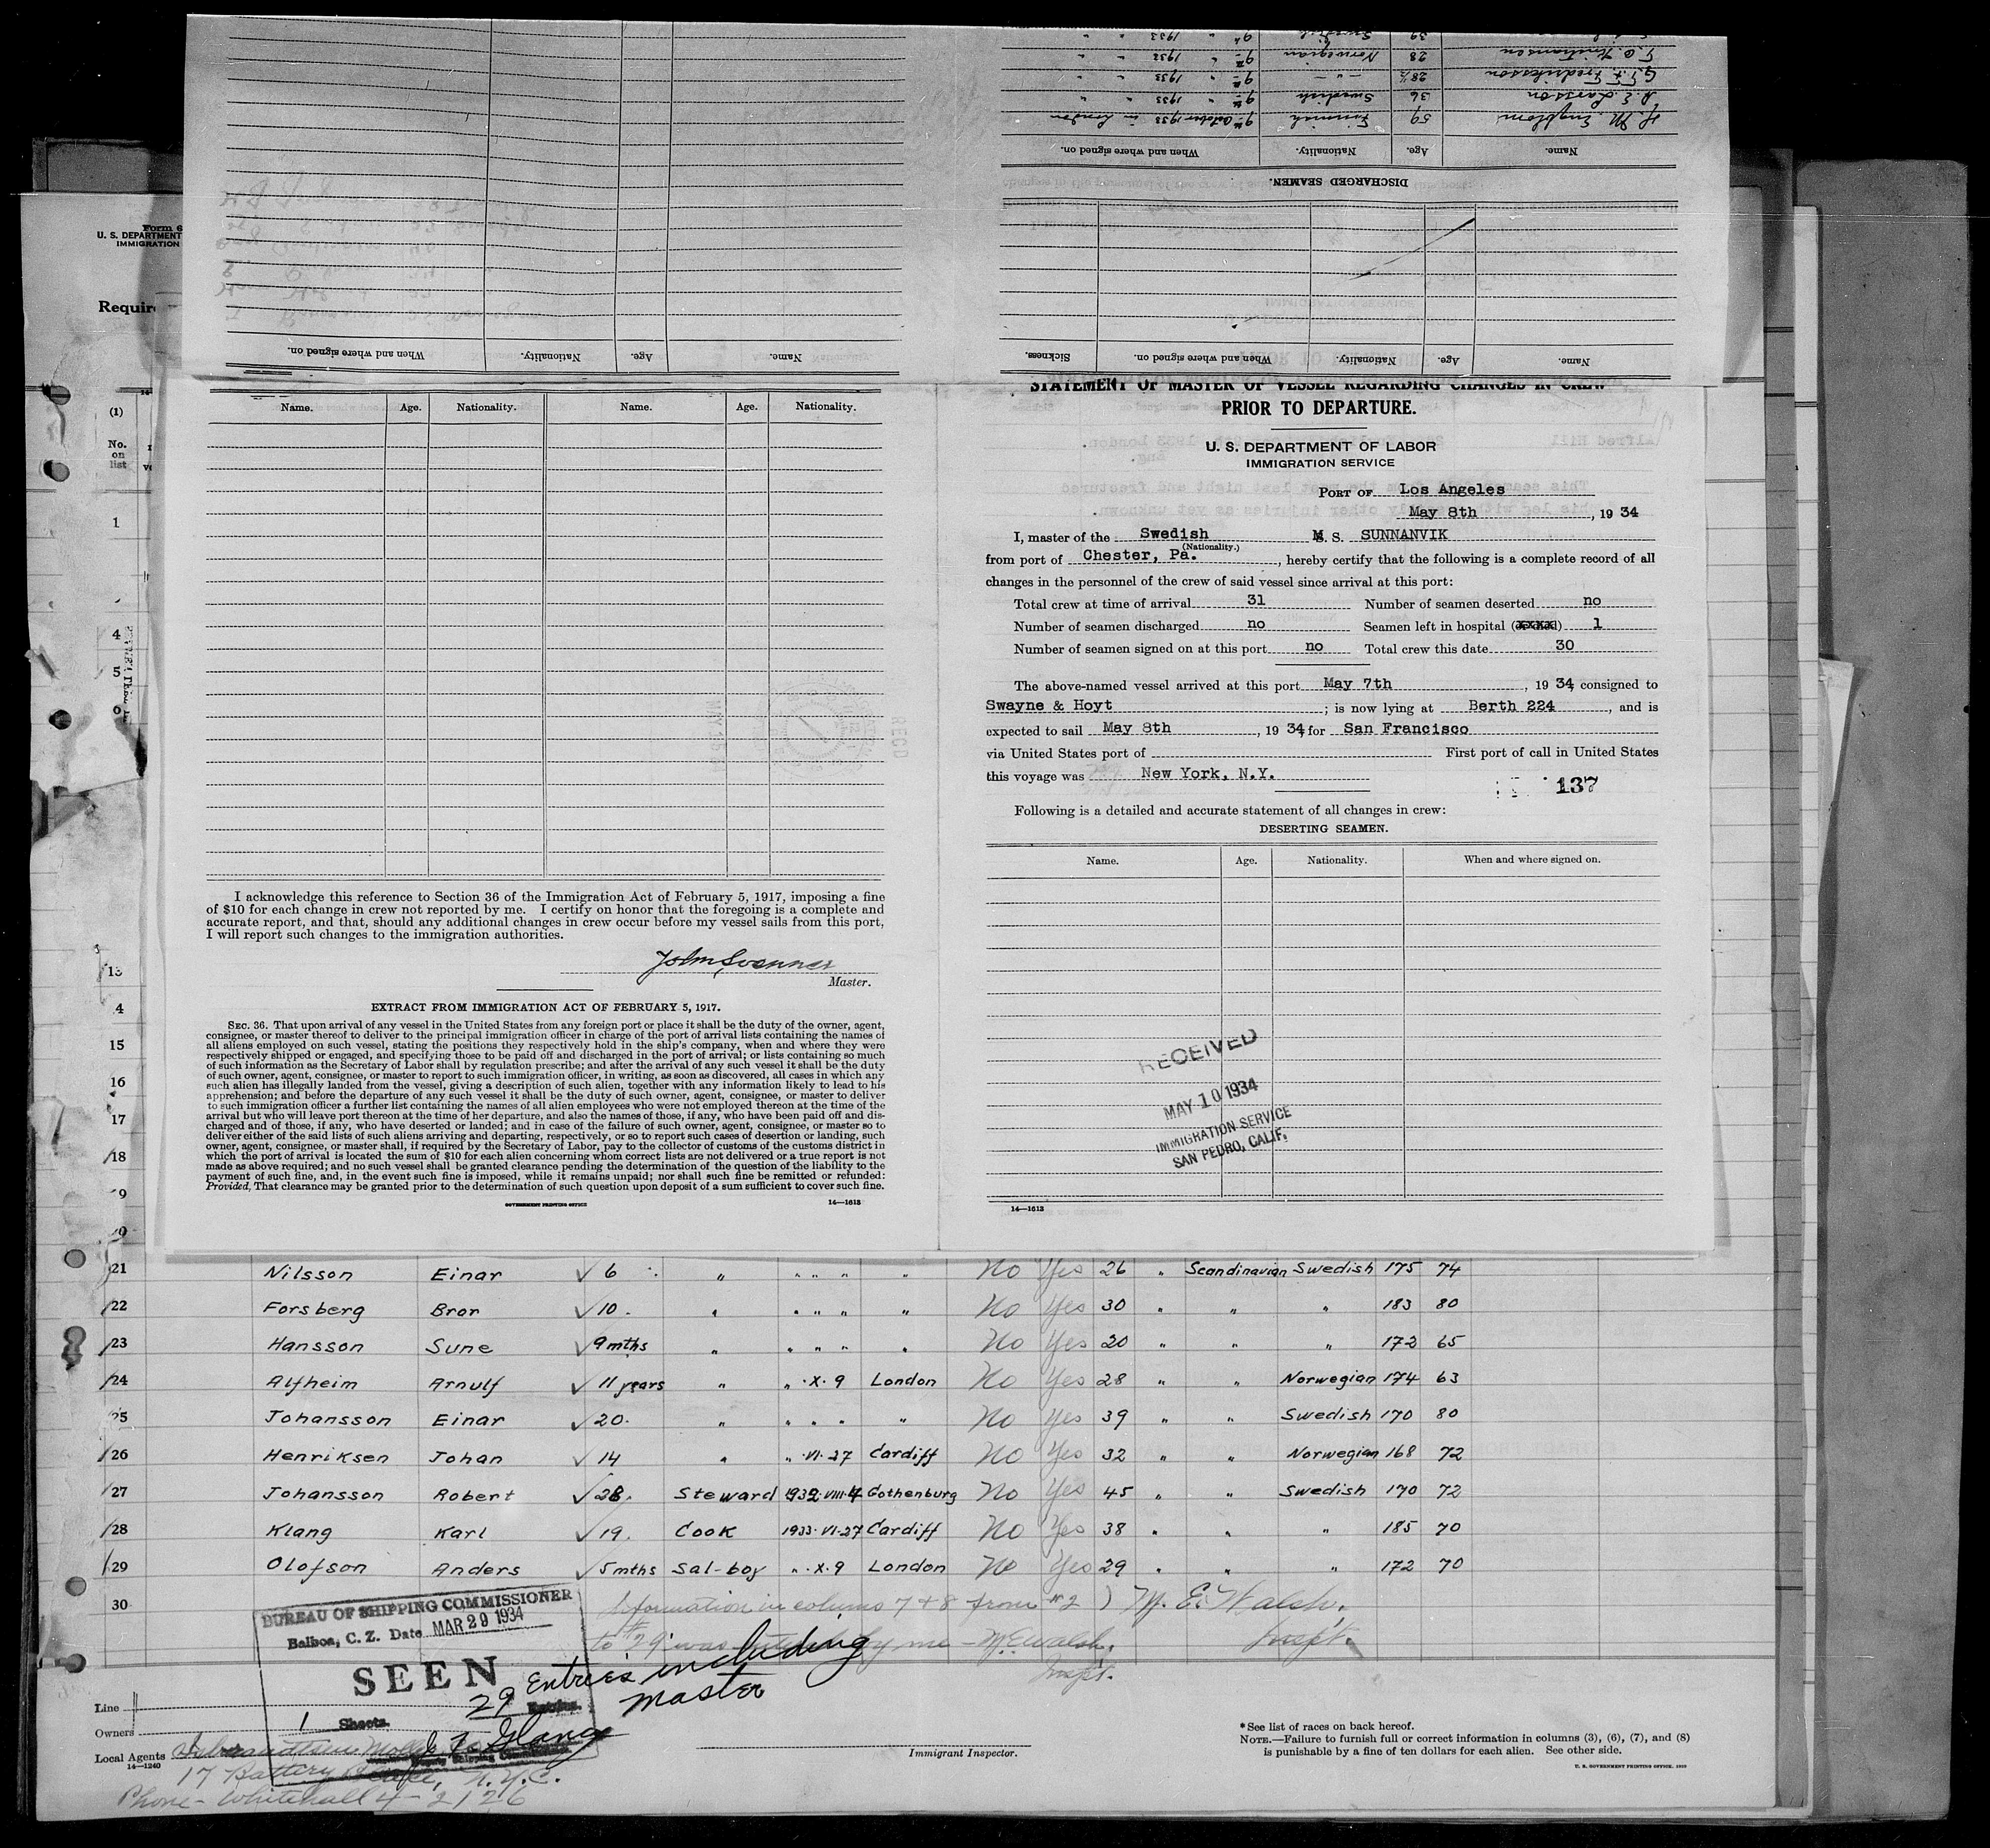 Name. Age. Nationality. When and where signed on.
Name. Age. Nationality. When and where signed on. Sickness.
DISCHARGED SEAMEN.
Name. Age. Nationality. When and where signed on.
H. M. Engblom 59 Finnish 9th October 1933 in London
A. E. Larsson 36 Swedish 9th " 1933 " "
G. T. F. Fredriksson 28½ — " — 9th " 1933 " "
28 Norwegian 9th " 1933 " "
39 Swedish 9th " 1933 " "
Form 6
U. S. DEPARTMENT
IMMIGRATION
Require
(1)
No.
on
list
1
4
5
13
4
15
16
17
18
9
Name. Age. Nationality. Name. Age. Nationality.
I acknowledge this reference to Section 36 of the Immigration Act of February 5, 1917, imposing a fine
of $10 for each change in crew not reported by me. I certify on honor that the foregoing is a complete and
accurate report, and that, should any additional changes in crew occur before my vessel sails from this port,
I will report such changes to the immigration authorities.
Master.
EXTRACT FROM IMMIGRATION ACT OF FEBRUARY 5, 1917.
SEC. 36. That upon arrival of any vessel in the United States from any foreign port or place it shall be the duty of the owner, agent,
consignee, or master thereof to deliver to the principal immigration officer in charge of the port of arrival lists containing the names of
all aliens employed on such vessel, stating the positions they respectively hold in the ship's company, when and where they were
respectively shipped or engaged, and specifying those to be paid off and discharged in the port of arrival; or lists containing so much
of such information as the Secretary of Labor shall by regulation prescribe; and after the arrival of any such vessel it shall be the duty
of such owner, agent, consignee, or master to report to such immigration officer, in writing, as soon as discovered, all cases in which any
such alien has illegally landed from the vessel, giving a description of such alien, together with any information likely to lead to his
apprehension; and before the departure of any such vessel it shall be the duty of such owner, agent, consignee, or master to deliver
to such immigration officer a further list containing the names of all alien employees who were not employed thereon at the time of the
arrival but who will leave port thereon at the time of her departure, and also the names of those, if any, who have been paid off and dis-
charged and of those, if any, who have deserted or landed; and in case of the failure of such owner, agent, consignee, or master so to
deliver either of the said lists of such aliens arriving and departing, respectively, or so to report such cases of desertion or landing, such
owner, agent, consignee, or master shall, if required by the Secretary of Labor, pay to the collector of customs of the customs district in
which the port of arrival is located the sum of $10 for each alien concerning whom correct lists are not delivered or a true report is not
made as above required; and no such vessel shall be granted clearance pending the determination of the question of the liability to the
payment of such fine, and, in the event such fine is imposed, while it remains unpaid; nor shall such fine be remitted or refunded:
Provided, That clearance may be granted prior to the determination of such question upon deposit of a sum sufficient to cover such fine.
GOVERNMENT PRINTING OFFICE 14—1613
STATEMENT OF MASTER OF VESSEL REGARDING CHANGES IN CREW
PRIOR TO DEPARTURE.
U. S. DEPARTMENT OF LABOR
IMMIGRATION SERVICE
PORT OF Los Angeles
May 8th, 1934
I, master of the Swedish M. S. SUNNANVIK
(Nationality.)
from port of Chester, Pa., hereby certify that the following is a complete record of all
changes in the personnel of the crew of said vessel since arrival at this port:
Total crew at time of arrival 31 Number of seamen deserted no
Number of seamen discharged no Seamen left in hospital (xxxx) 1
Number of seamen signed on at this port no Total crew this date 30
The above-named vessel arrived at this port May 7th, 1934, consigned to
Swayne & Hoyt; is now lying at Berth 224, and is
expected to sail May 8th, 1934, for San Francisco
via United States port of First port of call in United States
this voyage was New York, N.Y.
137
Following is a detailed and accurate statement of all changes in crew:
DESERTING SEAMEN.
Name. Age. Nationality. When and where signed on.
RECEIVED
MAY 10 1934
IMMIGRATION SERVICE
SAN PEDRO, CALIF.
14—1613
21 Nilsson Einar √ 6 " " " " " " No Yes 26 " Scandinavian Swedish 175 74
22 Forsberg Bror √ 10 . " " " " " No Yes 30 " " " 183 80
23 Hansson Sune √ 9 mths " " " " " No Yes 20 " " " 172 65
24 Alfheim Arnulf √ 11 years " " .X.9 London No Yes 28 " " Norwegian 174 63
25 Johansson Einar √ 20. " " " " " No Yes 39 " " Swedish 170 80
26 Henriksen Johan √ 14 " " .VI.27 Cardiff No Yes 32 " " Norwegian 168 72
27 Johansson Robert √ 28. Steward 1932.VIII.4 Gothenburg No Yes 45 " " Swedish 170 72
28 Klang Karl √ 19. Cook 1933.VI.27 Cardiff No Yes 38 " " " 185 70
29 Olofson Anders √ 5 mths Sal-boy " .X.9 London No Yes 29 " " " 172 70
30 Information in column 7 & 8 from #2 ) M. E. Walsh.
to #29 was entered by me - M E Walsh. Inspt.
Inspt.
BUREAU OF SHIPPING COMMISSIONER
Balboa, C. Z. Date MAR 29 1934
SEEN
29 Entries including
Master
1 Sheets.
Line
Owners
Local Agents
14—1240
17 Battery Place, N.Y.C.
Phone - Whitehall 4-2126
Immigrant Inspector.
* See list of races on back hereof.
NOTE.—Failure to furnish full or correct information in columns (3), (6), (7), and (8)
is punishable by a fine of ten dollars for each alien. See other side.
U. S. GOVERNMENT PRINTING OFFICE